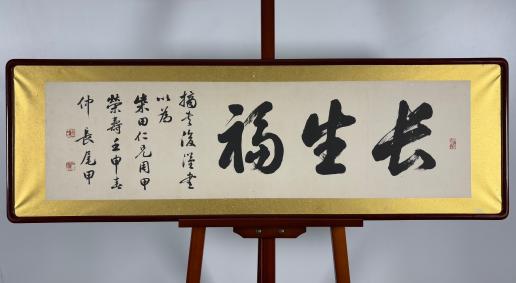 长生福
摘後漢書
以為
柴田仁兄周甲
榮壽壬申春
仲 長尾甲